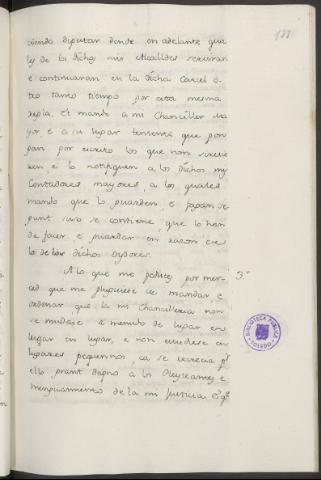 133
ciendo diputar dende en adelante qua
les de los dichos mis Alcaldes servirán
e continuaran en la dicha Carcel o
tro tanto tiempo por esta mesma
regla. Et mando a mi Chanciller ma
yor e a su lugar teniente que pon
gan por escrito los que non sirvie
ren, e lo notifiquen a los dichos mis
Contadores mayores, a los quales
mando que lo guarden e fagan se
gunt suso se contiene, que lo han
de facer, e guardar en razon de
lo de los dichos oydores.
A lo que me pedistes por mer-
ced que me pluguiese de mandar, e
ordenar que la mi Chancilleria non
se mudase a menudo de lugar en
lugar en lugar, e non estudiese en
lugares pequeños, ca se recrecia por
ello grant dagno a los Pleyteantes, e
menguamiento de la mi Justicia
3.º
BIBLIOTECA PÚBLICA
TOLEDO